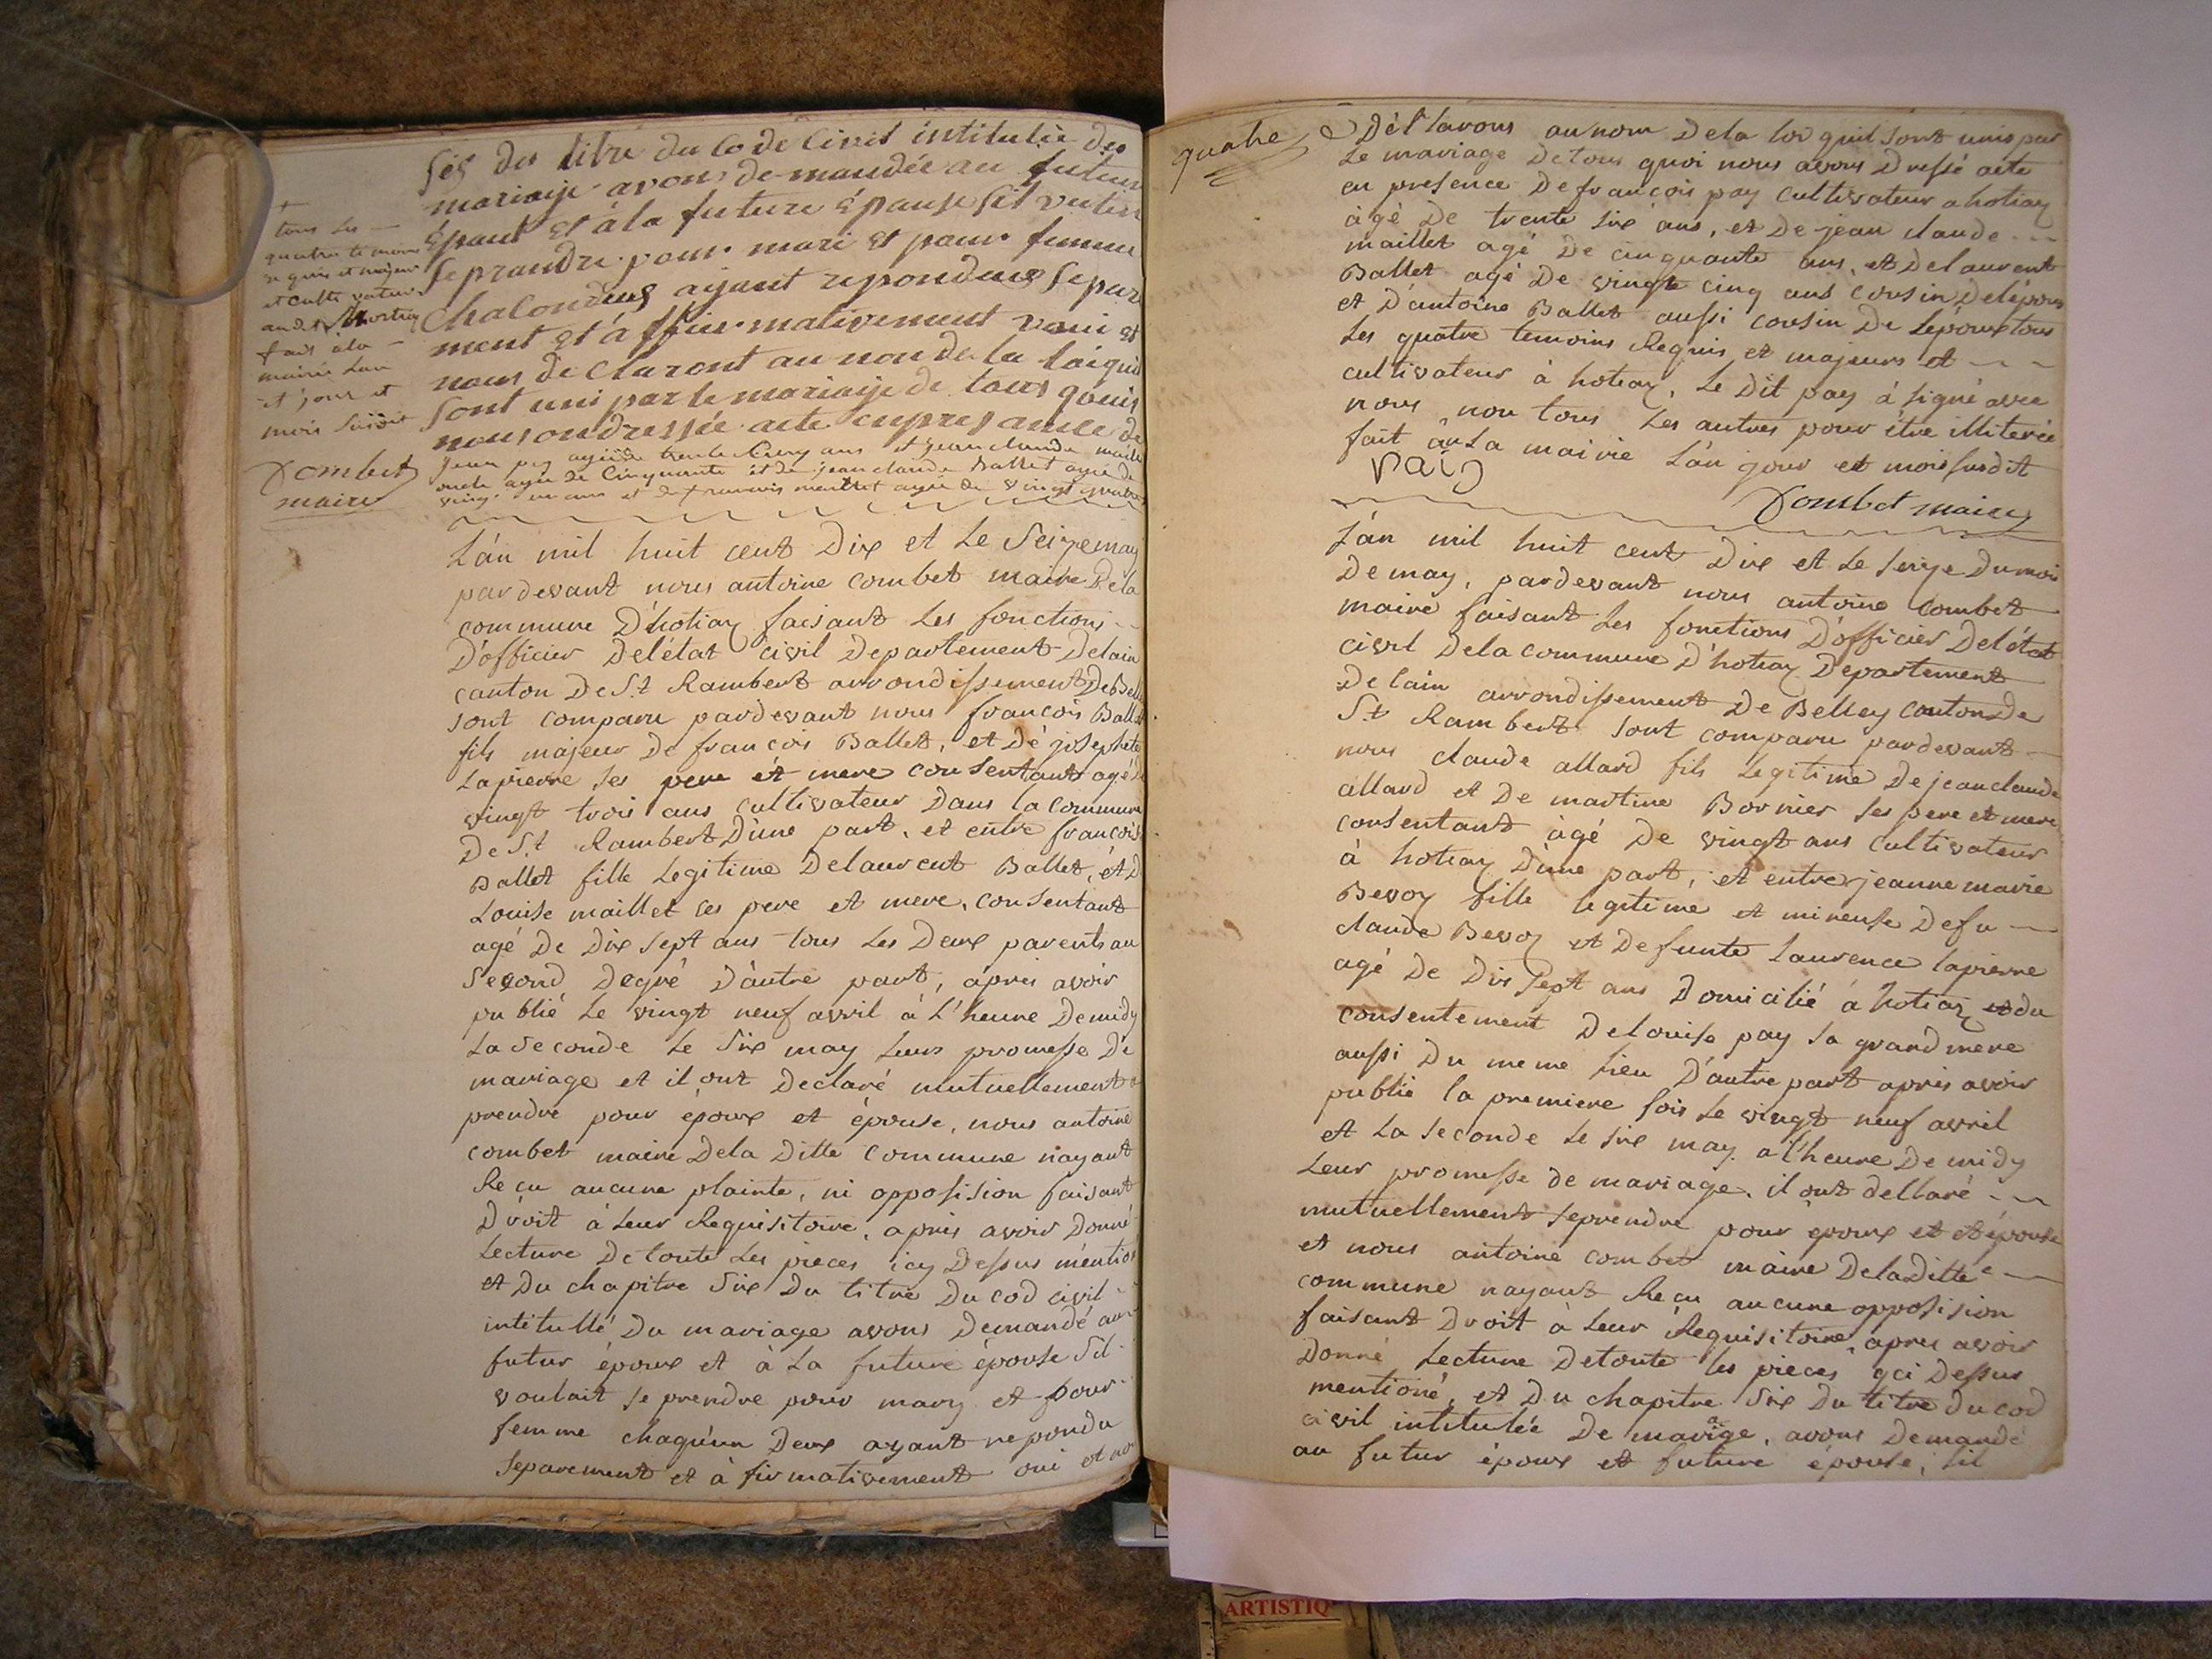 six du titre du Code Civil intitulée du
mariaije avons demandée au futeur
Epout et à la future Epause sil veulen
se prandre pour mari et pour femme
Chalondeus ayant repondeus separ
ment et á ffirmativement voui et
nous declaront au non de la loi quil
sont uni par le mariaije de tous quoiis
nous ondressée acte en presance de
jean pey agée de trente cinq ans et jean claude maille
oncle agée de Cinquante et de jean claude Ballet agée de
vingt un ans et de francois maillet agée de vingt quatre
+
tous les
quatre temoins
requis et majeur
et cultivateur
audit hortiey
fait ala
mairie lan
et jour et
mois susdit
Combet
maire
L'án mil huit cent Dix et Le Seize may
par devant nous antoine Combet maire De la
commune D'hotiay faisant Les fonctions
D'officier Del'état civil Departement Delain
canton De S.t Rambert arrondissement DeBell
sont comparu pardevant nous francois Ballet
fils majeur De francois Ballet, et Dé josephete
Lapierre Ses pere et mere consentant agé d
vingt trois ans cultivateur Dans la commune
De S.t Rambert D'une part, et entre francois
Ballet fille Legitime Delaurent Ballet, et D
Louise maillet Ses pere et mere, consentant
agé De Dix Sept ans tous Les Deux parents au
Second Degré D'autre part, aprés avoir
publié Le vingt neuf avril à L'heure Demidy
La Seconde Le Six may Leurs promesse De
mariage et il ont Declaré mutuellement
prendre pour époux et épouse, nous antoine
combet maire Dela Ditte commune n'ayant
Recu aucune plainte, ni opposision faisant
Droit à Leur Requisitoire, aprés avoir Donné
Lecture Detoute Les pieces icy Dessus méntio
et Du chapitre Six Du titre Du cod civil
intitullé Du mariage avons Demandé au
futur époux et à La future épouse Sil
voulait se prendre pour mary et pour
femme chaqu'un Deux ayant repondu
Separement et à firmativement oui et no
quatre
Déllarons au nom Dela loi quil Sont unis par
Le mariage Detous quoi nous avons Dressé acte
en presence De francois pay cultivateur a hotiay
àgé De trente Six ans, et De jean claude
maillet agé De cinquante ans, et Delaurent
Ballet agé De vingt cinq ans cousin Del'époux
et D'antoine Ballet aussi cousin De L'époux tous
Les quatre temoins Requis et majeurs et
cultivateur à hotiay, Le Dit pay á signé avec
nous non tous Les autres pour être illiterée
fait à La mairie L'án jour et mois susdit
Combet maire
L'án mil huit cent Dix et Le Seize Du mois
De may, pardevant nous antoine combet
maire faisant Les fonctions D'officier Del'état
civil Dela commune D'hotiay Departement
De lain arrondissement De Belley canton De
S.t Rambert Sont comparu pardevant
nous claude allard fils Legitime De jean claude
allard et De martine Bornier Ses pere et mere
consentant àgé De vingt ans cultivateur
à hotiay D'une part, et entre jeanne marie
Bevoz fille legitime et mineuse Defu
claude Bevoz et Defunte Laurence lapierre
agé De Dix Sept ans Domicilié á hotiay et du
consentement Delouise pay Sa grand mere
aussi Du meme Lieu D'autre part aprés avoir
publié la premiere fois Le vingt neuf avril
et La Seconde Le Six may a l'heure Demidy
Leur promesse de mariage, il ont dellaré
mutuellement se prendre pour époux et et épouse
et nous antoine combet maire Dela Ditte
commune nayant Recu aucune opposision
faisant Droit à Leur Requisitoire, aprés avoir
Donné Lecture Detoute les pieces yci Dessus
mentioné, et Du chapitre Six Du titre Du cod
civil intitulée De mariage, avons Demandé
au futur époux et future épouse, Sil
ARTISTIQ